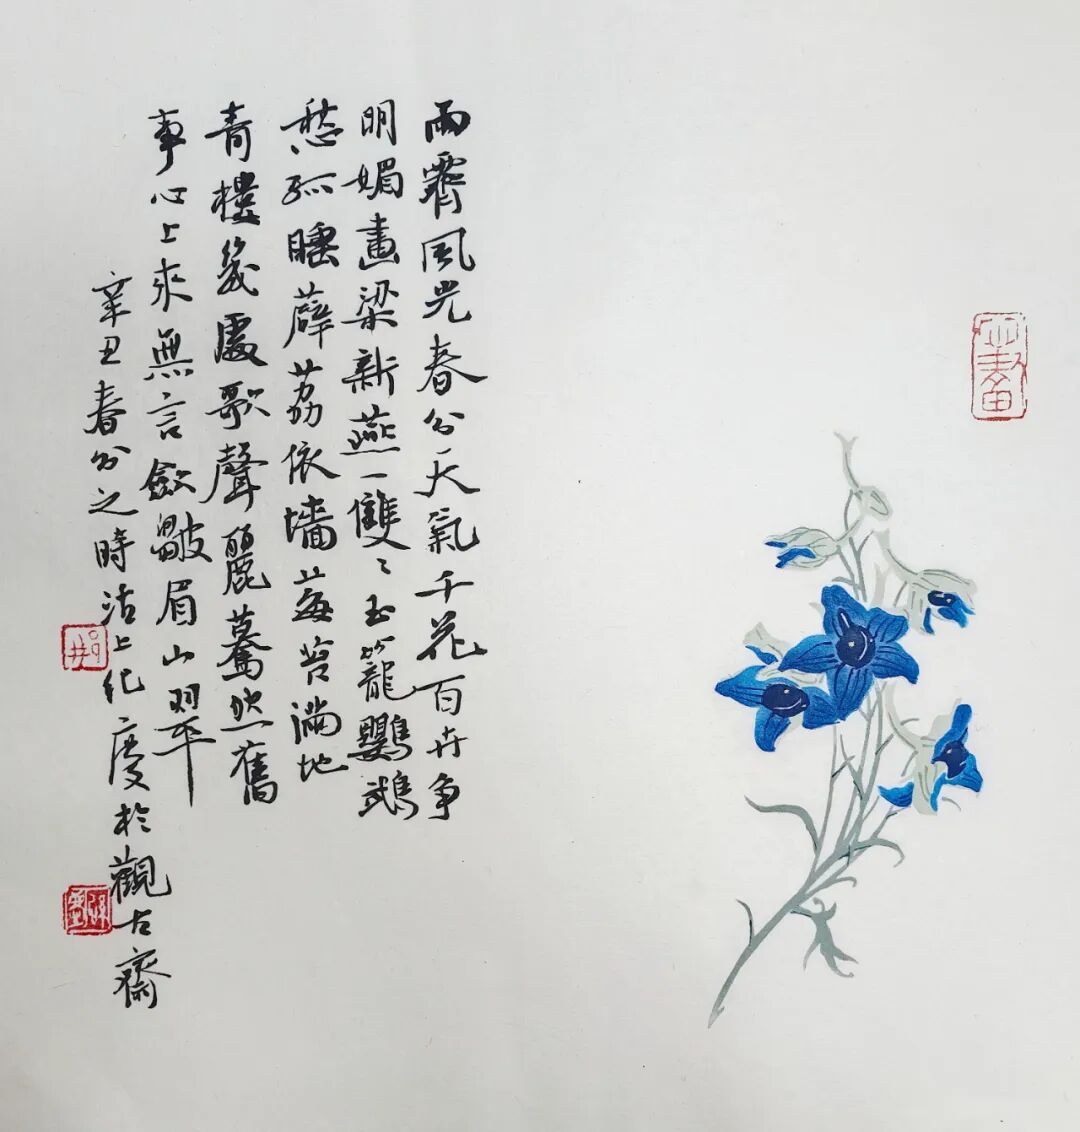 雨霽風光春分天氣千花百卉争
明媚畫梁新燕一雙〻玉籠鸚鵡
愁孤睡薜荔依墙莓苔滿地
青樓幾處歌聲麗驀然舊
事心上来無言斂皺眉山翠
辛丑春分之時沽上於觀古齋